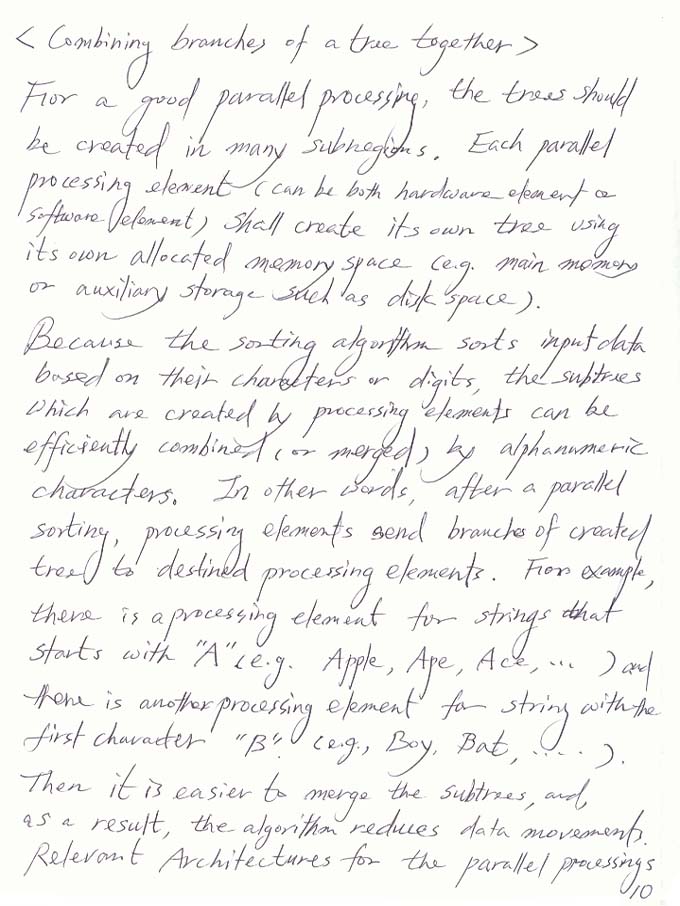 < Combining branches of a tree together >
For a good parallel processing, the trees should
be created in many subregions. Each parallel
processing element (can be both hardware element or
software element) shall create its own tree using
its own allocated memory space (e.g. main memory
or auxiliary storage such as disk space).
Because the sorting algorithm sorts input data
based on their characters or digits, the subtrees
which are created by processing elements can be
efficiently combined (or merged) by alphanumeric
characters. In other words, after a parallel
sorting, processing elements send branches of created
tree to destined processing elements. For example,
there is a processing element for strings that
starts with "A" (e.g. Apple, Ape, Ace, ... ) and
there is another processing element for string with the
first character "B". (e.g., Boy, Bat, ..... ).
Then it is easier to merge the subtrees, and,
as a result, the algorithm reduces data movements.
Relevant Architectures for the parallel processings
10